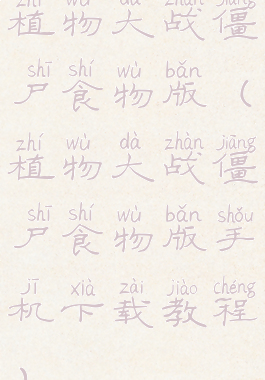 zhí wù dà zhàn jiāng
植物大战僵
shī shí wù bǎn
尸食物版（
zhí wù dà zhàn jiāng
植物大战僵
shī shí wù bǎn shǒu
尸食物版手
jī xià zài jiào chéng
机下载教程
）